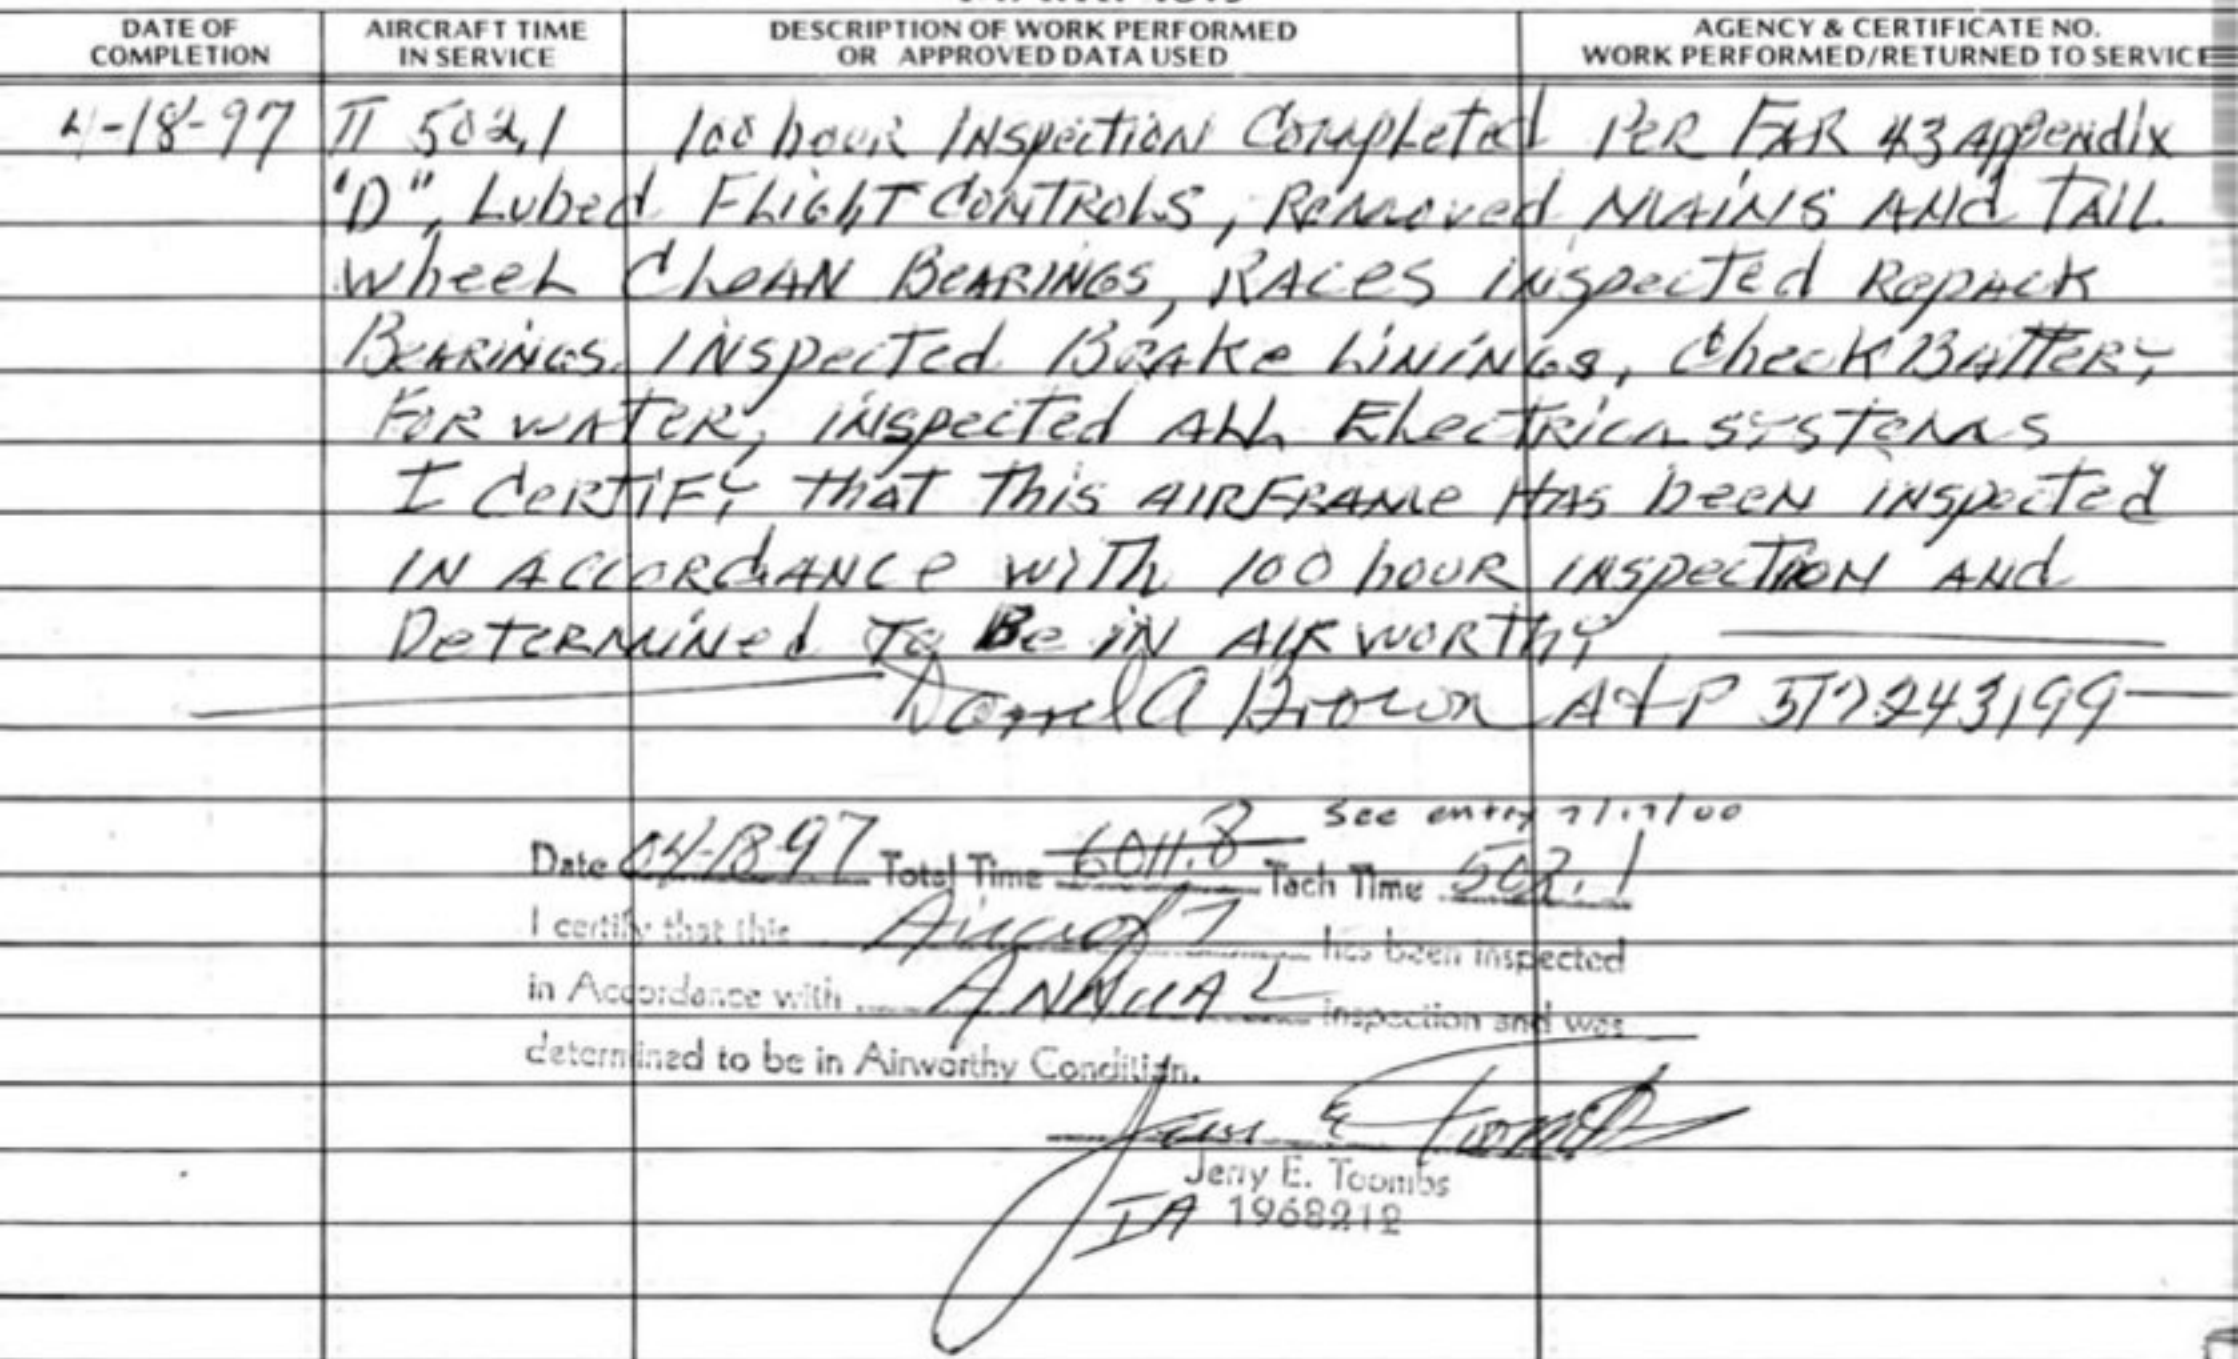 DATE OF COMPLETION
AIRCRAFT TIME IN SERVICE
DESCRIPTION OF WORK PERFORMED OR APPROVED DATA USED
AGENCY & CERTIFICATE NO. WORK PERFORMED/RETURNED TO SERVICE
4-18-97 TT 502.1 100 hour Inspection Completed PER FAR 43 Appendix
"D", Lubed FLIGHT CONTROLS, Removed MAINS AND TAIL
wheel CLEAN BEARINGS, RACES inspected Repack
BEARINGS. INSpected Brake LININGS, Check BATTERY
FOR WATER, inspected ALL Electrica SYSTEMS
I CERTIFY that this AIRFRAME HAS been inspected
IN ACCORDANCE with 100 hour inspection AND
DETERMINED To Be iN AIRWORTHY
A Brown A&P 517243199
See entry 7/17/00
Date 04-18-97 Total Time 6011.8 Tach Time 502.1
I certify that this Aircraft has been inspected
in Accordance with ANNUAL inspection and was
determined to be in Airworthy Condition.
Jerry E. Toombs
IA 1968212